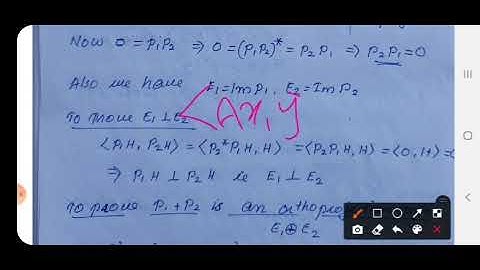 Now 0 = P₁P₂ ⇒ 0 = (P₁P₂)* = P₂P₁ ⇒ P₂P₁ = 0
Also we have E₁ = Im P₁, E₂ = Im P₂
To prove E₁ ⊥ E₂
<Ax, y
⟨P₁H, P₂H⟩ = ⟨P₂*P₁H, H⟩ = ⟨P₂P₁H, H⟩ = ⟨0, H⟩ =
⇒ P₁H ⊥ P₂H ie E₁ ⊥ E₂
To prove P₁+P₂ is an orthopro
E₁⊕E₂